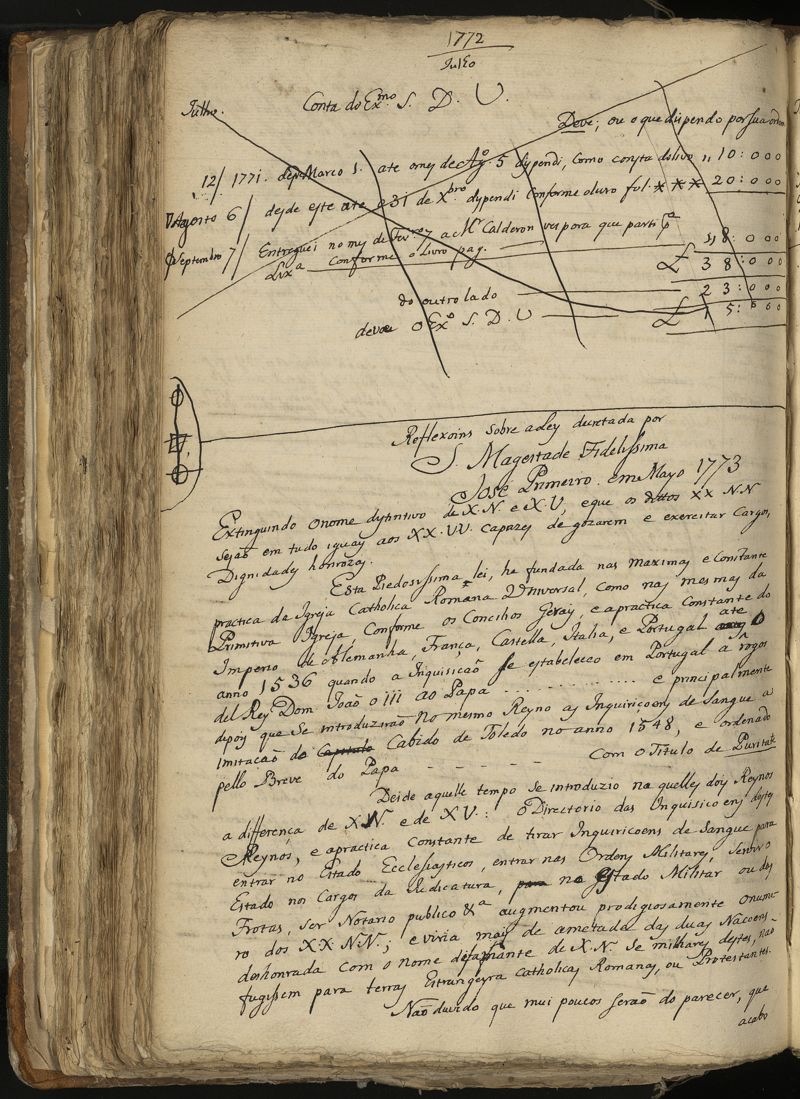 1772
Julho
Julho.
Conta do Ex.mo S. D. V.
Deve; ou o que dispendo por sua ordem
12/ 1771. des Marco 1. ate o mes de Ag.o 5 dispendi, como consta do livo ,, 10:000
Agosto 6/ desde este ate o 31 de X.bro dispendi conforme o livro fol. *** 20:000
Septembro 7/ Entreguei no mes de a M.r Calderon vespora que partis p.a 8:000
Lix.a conforme o Livro pag. £ 38:000
do outro lado 23:000
deve o Ex.o S. D. V £ 15:000
Reflexoins sobre a Ley decretada por
S. Magestade Fidelissima
José Primeiro. em Mayo 1773
Extinguindo o nome distintivo de X.N. e X.V, e que os dittos XX NN
sejão em tudo iguay aos XX.VV. capazes de gozarem e exercitar Cargos,
Dignidades honrozas.
Esta Piedosissima lei, he fundada nas maximas e Constante
practica da Igreja Catholica Romana Universal, como nas mesmas da
Primitiva Igreja, Conforme os Concilios Geray, e a practica Constante do
Imperio de Alemanha, França, Castella, Italia, e Portugal ate o
anno 1536 quando a Inquisicaõ se estabeleceo em Portugal a rogos
del Rey Dom João o III ao Papa . . . . . . . . . . . . . e principalmente
depois que se introduzirão no mesmo Reyno as Inquiriçoens de Sangue a
imitacaõ do Capitulo Cabido de Toledo no anno 1548, e ordenado
pello Breve do Papa - - - - - - Com o Titulo de Puritate
Desde aquelle tempo se introduzio naquelles dois Reynos
a differença de X.N. e de XV: o Directorio das Inquisicoens destes
Reynos, e a practica Constante de tirar Inquiricoens de Sangue para
entrar no Estado Ecclesiasticos, entrar nas Ordens Militares, servir o
Estado nos Cargos da Judicatura, para no Estado Militar ou das
Frotas, ser Notario publico &a augmentou prodigiosamente o nume-
ro dos XX.NN.; e viria mais de ametada das duas Nacoens
deshonrada com o nome de X.N. se milhares destes, não
fugissem para terras Estrangeyra Catholicas Romanas, ou Protestantes.
Naõ duvido que mui poucos seraõ do parecer, que
acabo